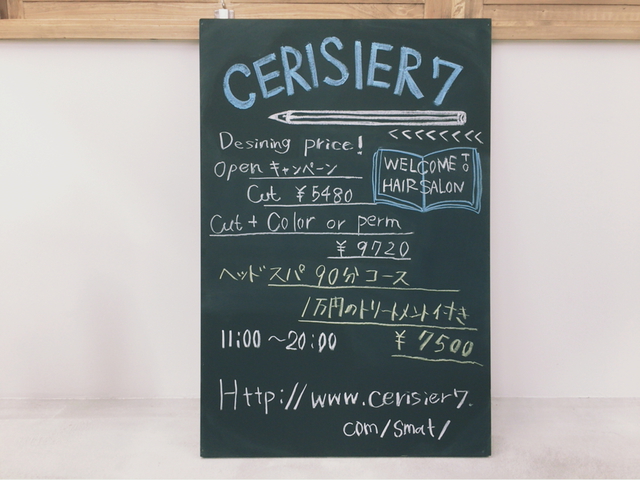 CERISIER7
Desining price!
Open キャンペーン
WELCOME TO
HAIR SALON
Cut ¥5480
Cut + Color or perm
¥ 9720
ヘッドスパ 90分コース
1万円のトリートメント付き
¥ 7500
11:00 ～20:00
Http://www.cerisier7.
com/smat/